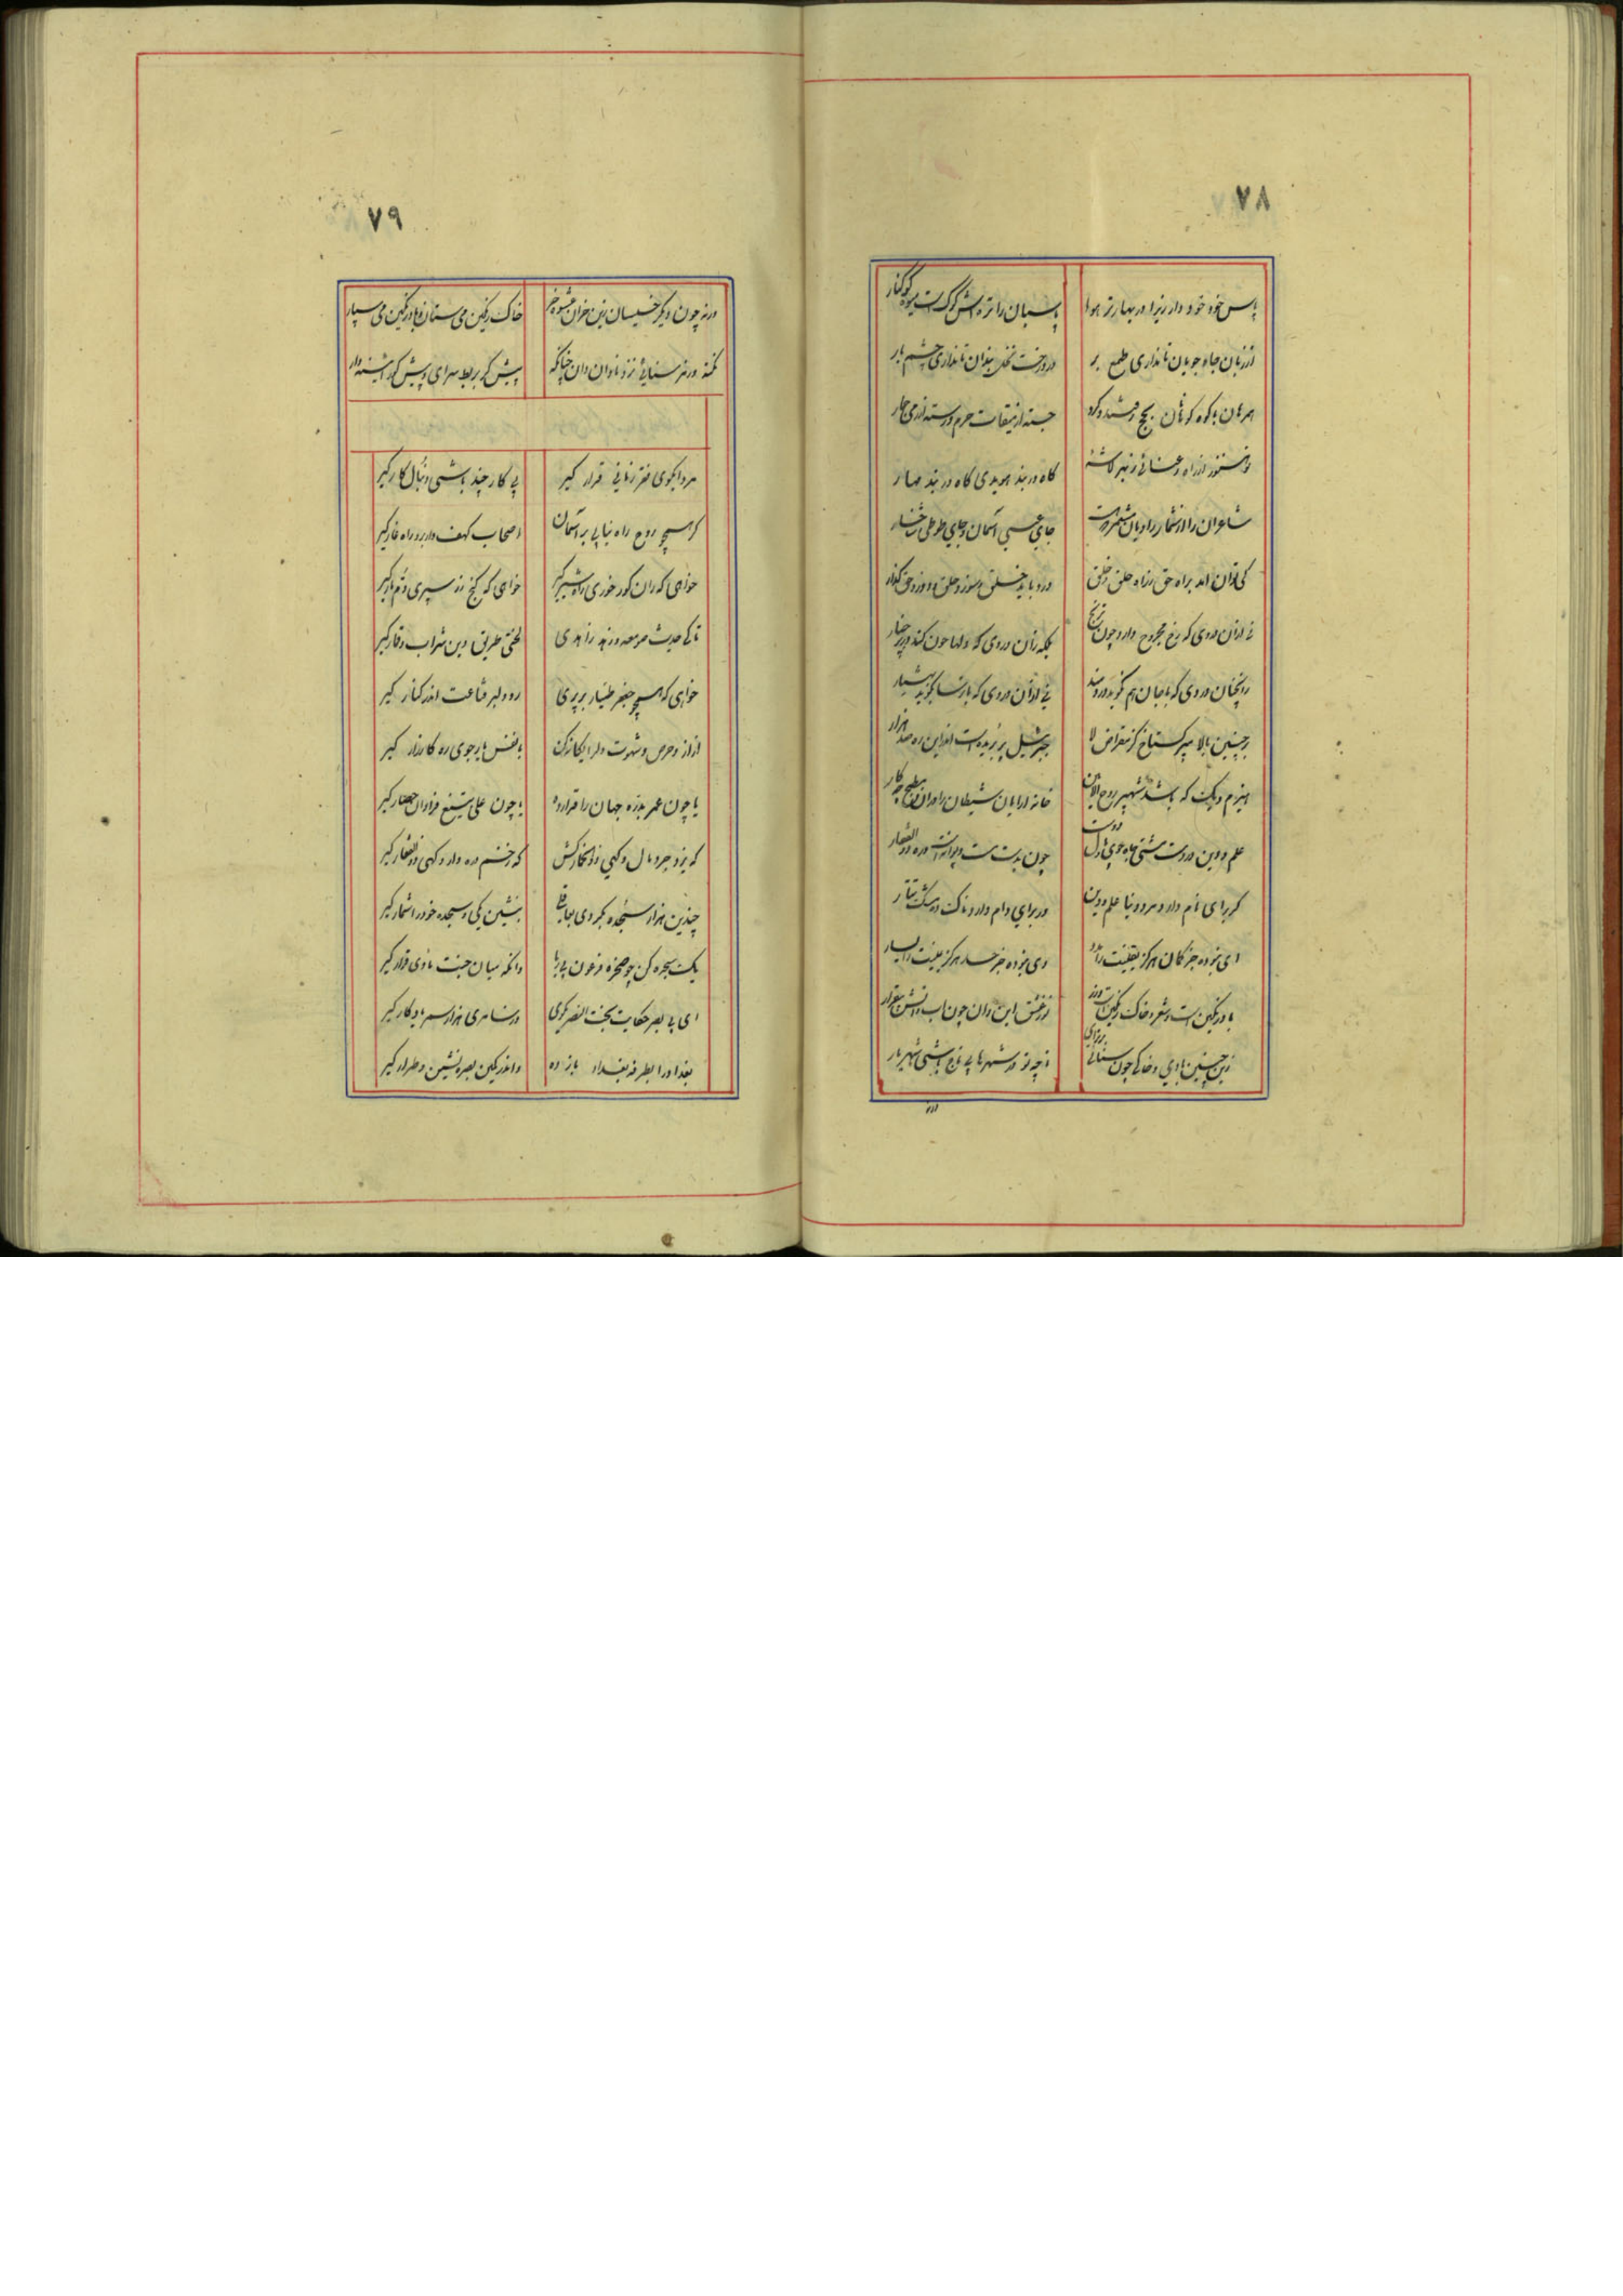 ۷۸
پاس خود خود دار زیرا در بهار تر هوا
پاسبان را تره اش کوک است میوه کوکنار
از زبان جاه جویان تا نداری طمع بر
در درخت نخل بندان تا نداری چشم بار
همرهان با کوه کوبان بحج رفتند و کرد
جسته از میقات حرم و رسته از رمی جمار
تو هنوز از راه رعنائی ز بهر لاشهٔ
گاه در بند هویدی گاه در بند مهار
شاعران را از شمار راویان مشمر که هست
جای عیسی آسمان و جای طوطی شاخسار
کی توان آمد براه حق ز راه حلق و جلق
درد باید حلق سوز و حلق دوز و حق گذار
نی از آن دردی که رخ مجروح دارد چون ترنج
بلکه زان دردی که دلها خون کند در بر چو نار
آنچنان دردی که با جان هم نگوید دردمند
نی از آن دردی که با ترسا بگوید بیشیار
بر چنین بالا مپر گستاخ کز مقراض لا
جبرئیل پر بریده است اندر این ره صد هزار
هیزم دیگی که باشد شهپر روح الامین
خانه آرایان شیطان را در آن مطبخ چه کار
علم و دین در دست مشتی جاه جوی مال دوست
چون بدست مست و دیوانه است دره و ذوالفقار
گر برای نام دارد مرد دنیا علم و دین
ور برای دام دارد ناک ده مشک تتار
ای نبوده جز گمان هرگز یقینت را مدد
وی نبوده جز حسد هرگز یمینت را یسار
باد رنگین است شعر و خاک رنگین است زر
تو ز عشق این و آن چون آب و آتش بیقرار
زین چنین بادی و خاکی چون سنائی برتر آی
تا چو تو در شهرها بی تاج باشی شهریار
ورنه
۷۹
ورنه چون دیگر خسیسان زین خران عشوه خر
خاک رنگین می ستان و باد رنگین می سپار
نکتهٔ و نظم سنائی نزد نادان دان چنانکه
پیش کر بربط سرای و پیش کور آیینه دار
مردا بکوی فقر زمانی قرار گیر
بی کار چند باشی دنبال کار گیر
گر همچو روح راه نیابی بر آسمان
اصحاب کهف وار برو راه غار گیر
خواهی که ران گور خوری راه شیر گیر
خواهی که گنج زر سپری دم مار گیر
تا کی حدیث صومعه و زهد و زاهدی
لختی طریق دین شراب و قمار گیر
خواهی که همچو جعفر طیار بر پری
رو دلبر قناعت اندر کنار گیر
از آز و حرص و شهوت دل را یگانه کن
با نفس یار جوی ره کارزار گیر
یا چون عمر بدره جهان را قرار ده
یا چون علی بتیغ فراوان حصار گیر
گه یزدجرد مال و گهی ذوالخمار کش
گه زخم دره دار و گهی ذوالفقار گیر
چندین هزار سجده بکردی بعابدی
بنشین یکی و سجده خود را شمار گیر
یک سجده کن چو سحره فرعون بی ریا
وانگه میان جنت ماوی قرار گیر
ای بی بصر حکایت بخت النصر مگوی
وز سامری هزار سمر یادگار گیر
بغداد را بطرفه بغداد باز ده
واندر کمین بصره نشین و طرار گیر